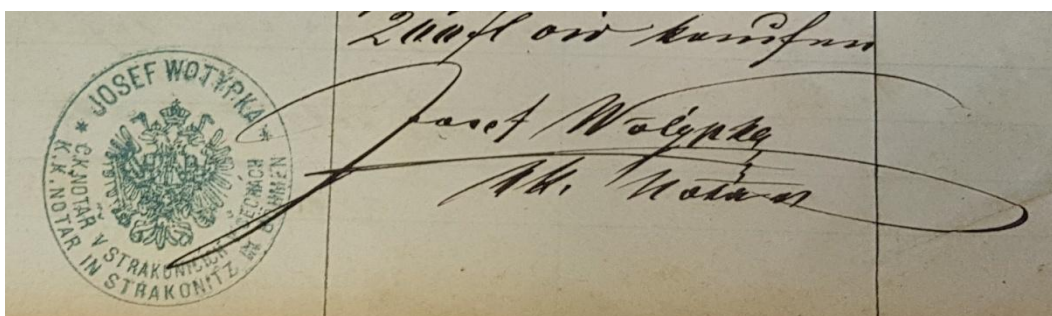 200 fl
Josef Wotypka
kk. Notar
* JOSEF WOTYPKA *
C.K. NOTÁŘ V STRAKONICÍCH V ČECHÁCH
K.K. NOTAR IN STRAKONITZ IN BÖHMEN